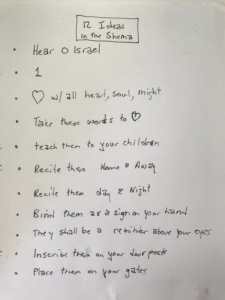 12 Ideas
in the Shema
Hear O Israel
1
♡ w/ all heart, soul, might
Take these words to ♡
teach them to your children
Recite them Home & Away
Recite them day & Night
Bind them as a sign on your hand
They shall be a reminder above your eyes
Inscribe them on your door posts
Place them on your gates